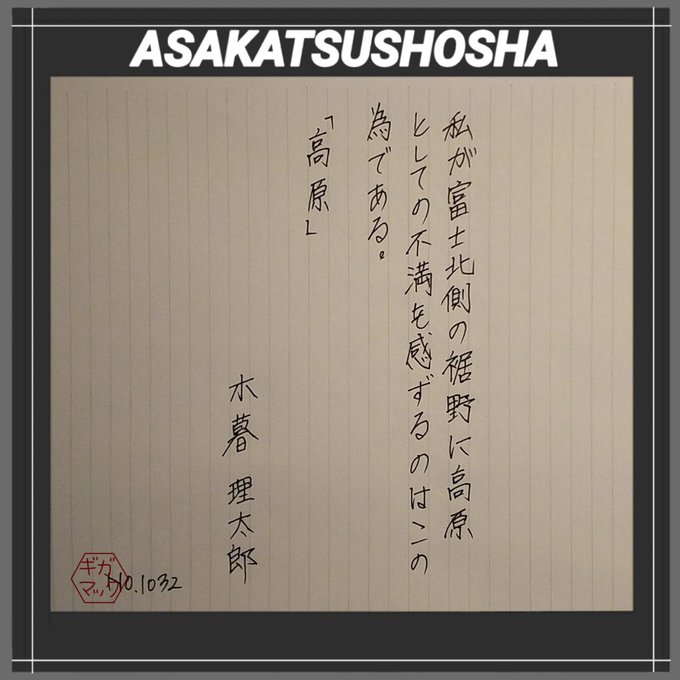 ASAKATSUSHOSHA
私が富士北側の裾野に高原
としての不満を感ずるのはこの
為である。
「高原」
木暮 理太郎
ギガ
マック
NO.1032